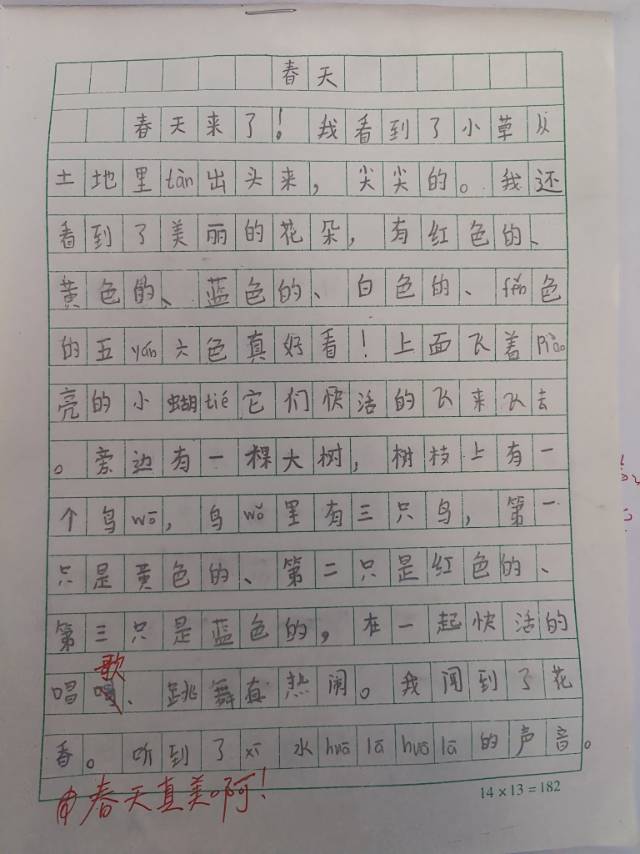 春天
春天来了！我看到了小草从
土地里tàn出头来，尖尖的。我还
看到了美丽的花朵，有红色的、
黄色的、蓝色的、白色的、fěn色
的五yán六色真好看！上面飞着piào
亮的小蝴tié它们快活的飞来飞去
。旁边有一棵大树，树枝上有一
个鸟wō，鸟wō里有三只鸟，第一
只是黄色的、第二只是红色的、
第三只是蓝色的，在一起快活的
歌
唱唱、跳舞真热闹。我闻到了花
香。听到了xī水huālāhuālā的声音。
春天真美啊！
14×13=182